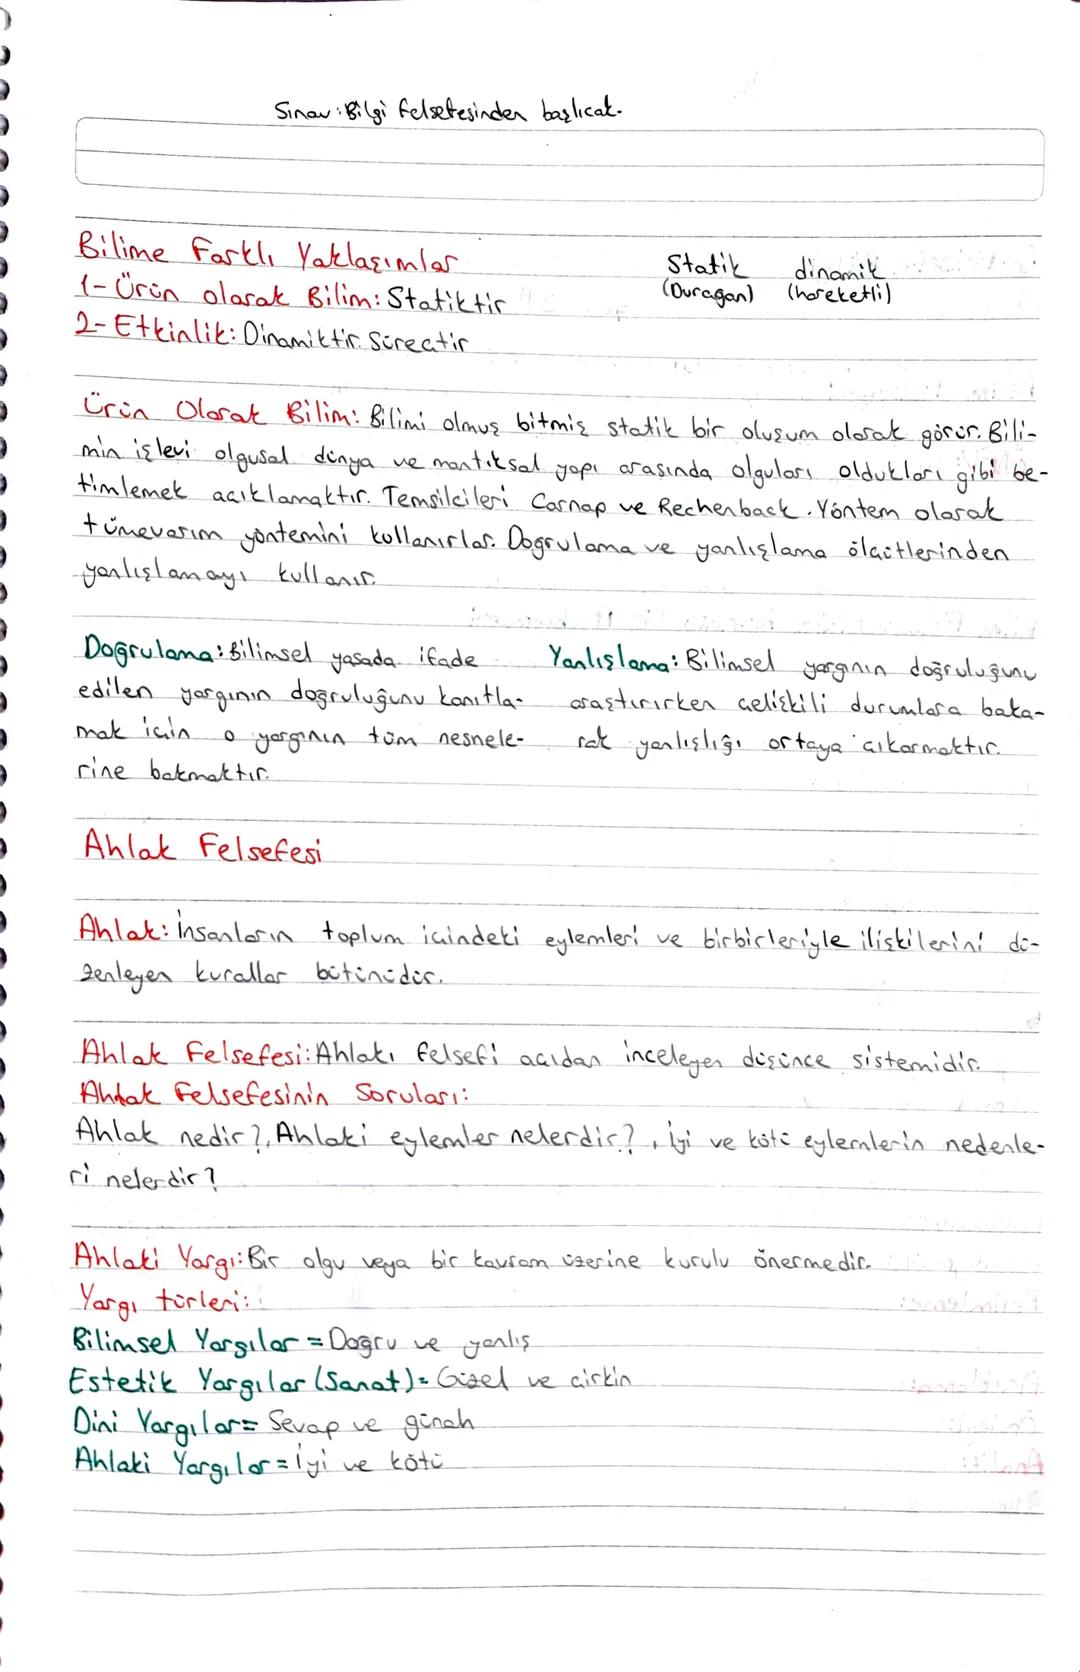 Sınav: Bilgi felsefesinden başlıcak.
Bilime Farklı Yaklaşımlar
Statik dinamik
1- Ürün olarak Bilim: Statiktir
(Duragan) (hareketli)
2- Etkinlik: Dinamiktir. Süreçtir
Ürün Olarak Bilim: Bilimi olmuş bitmiş statik bir oluşum olarak görür. Bili-
min işlevi olgusal dünya ve mantıksal yapı arasında olguları oldukları gibi be-
timlemek açıklamaktır. Temsilcileri Carnap ve Recherback. Yöntem olarak
tümevarım yöntemini kullanırlar. Dogrulama ve yanlışlama ölçütlerinden
yanlışlamayı kullanır.
Doğrulama: Bilimsel yasada ifade
edilen yargının doğruluğunu kanıtla-
mak için o yargının tüm nesnele-
rine bakmaktır.
Yanlışlama: Bilimsel yargının doğruluğunu
araştırırken çelişkili durumlara baka-
rak yanlışlığı ortaya çıkarmaktır.
Ahlak Felsefesi
Ahlak: İnsanların toplum içindeki eylemleri ve birbirleriyle ilişkilerini dü-
zenleyen kurallar bütünüdür.
Ahlak Felsefesi: Ahlakı felsefi açıdan inceleyen düşünce sistemidir.
Ahlak Felsefesinin Soruları:
Ahlak nedir?, Ahlaki eylemler nelerdir?, İyi ve kötü eylemlerin nedenle-
ri nelerdir?
Ahlaki Yargı: Bir olgu veya bir kavram üzerine kurulu önermedir.
Yargı türleri:
Bilimsel Yargılar = Dogru ve yanlış
Estetik Yargılar (Sanat) = Güzel ve çirkin
Dini Yargılar = Sevap ve günah
Ahlaki Yargılar = İyi ve kötü